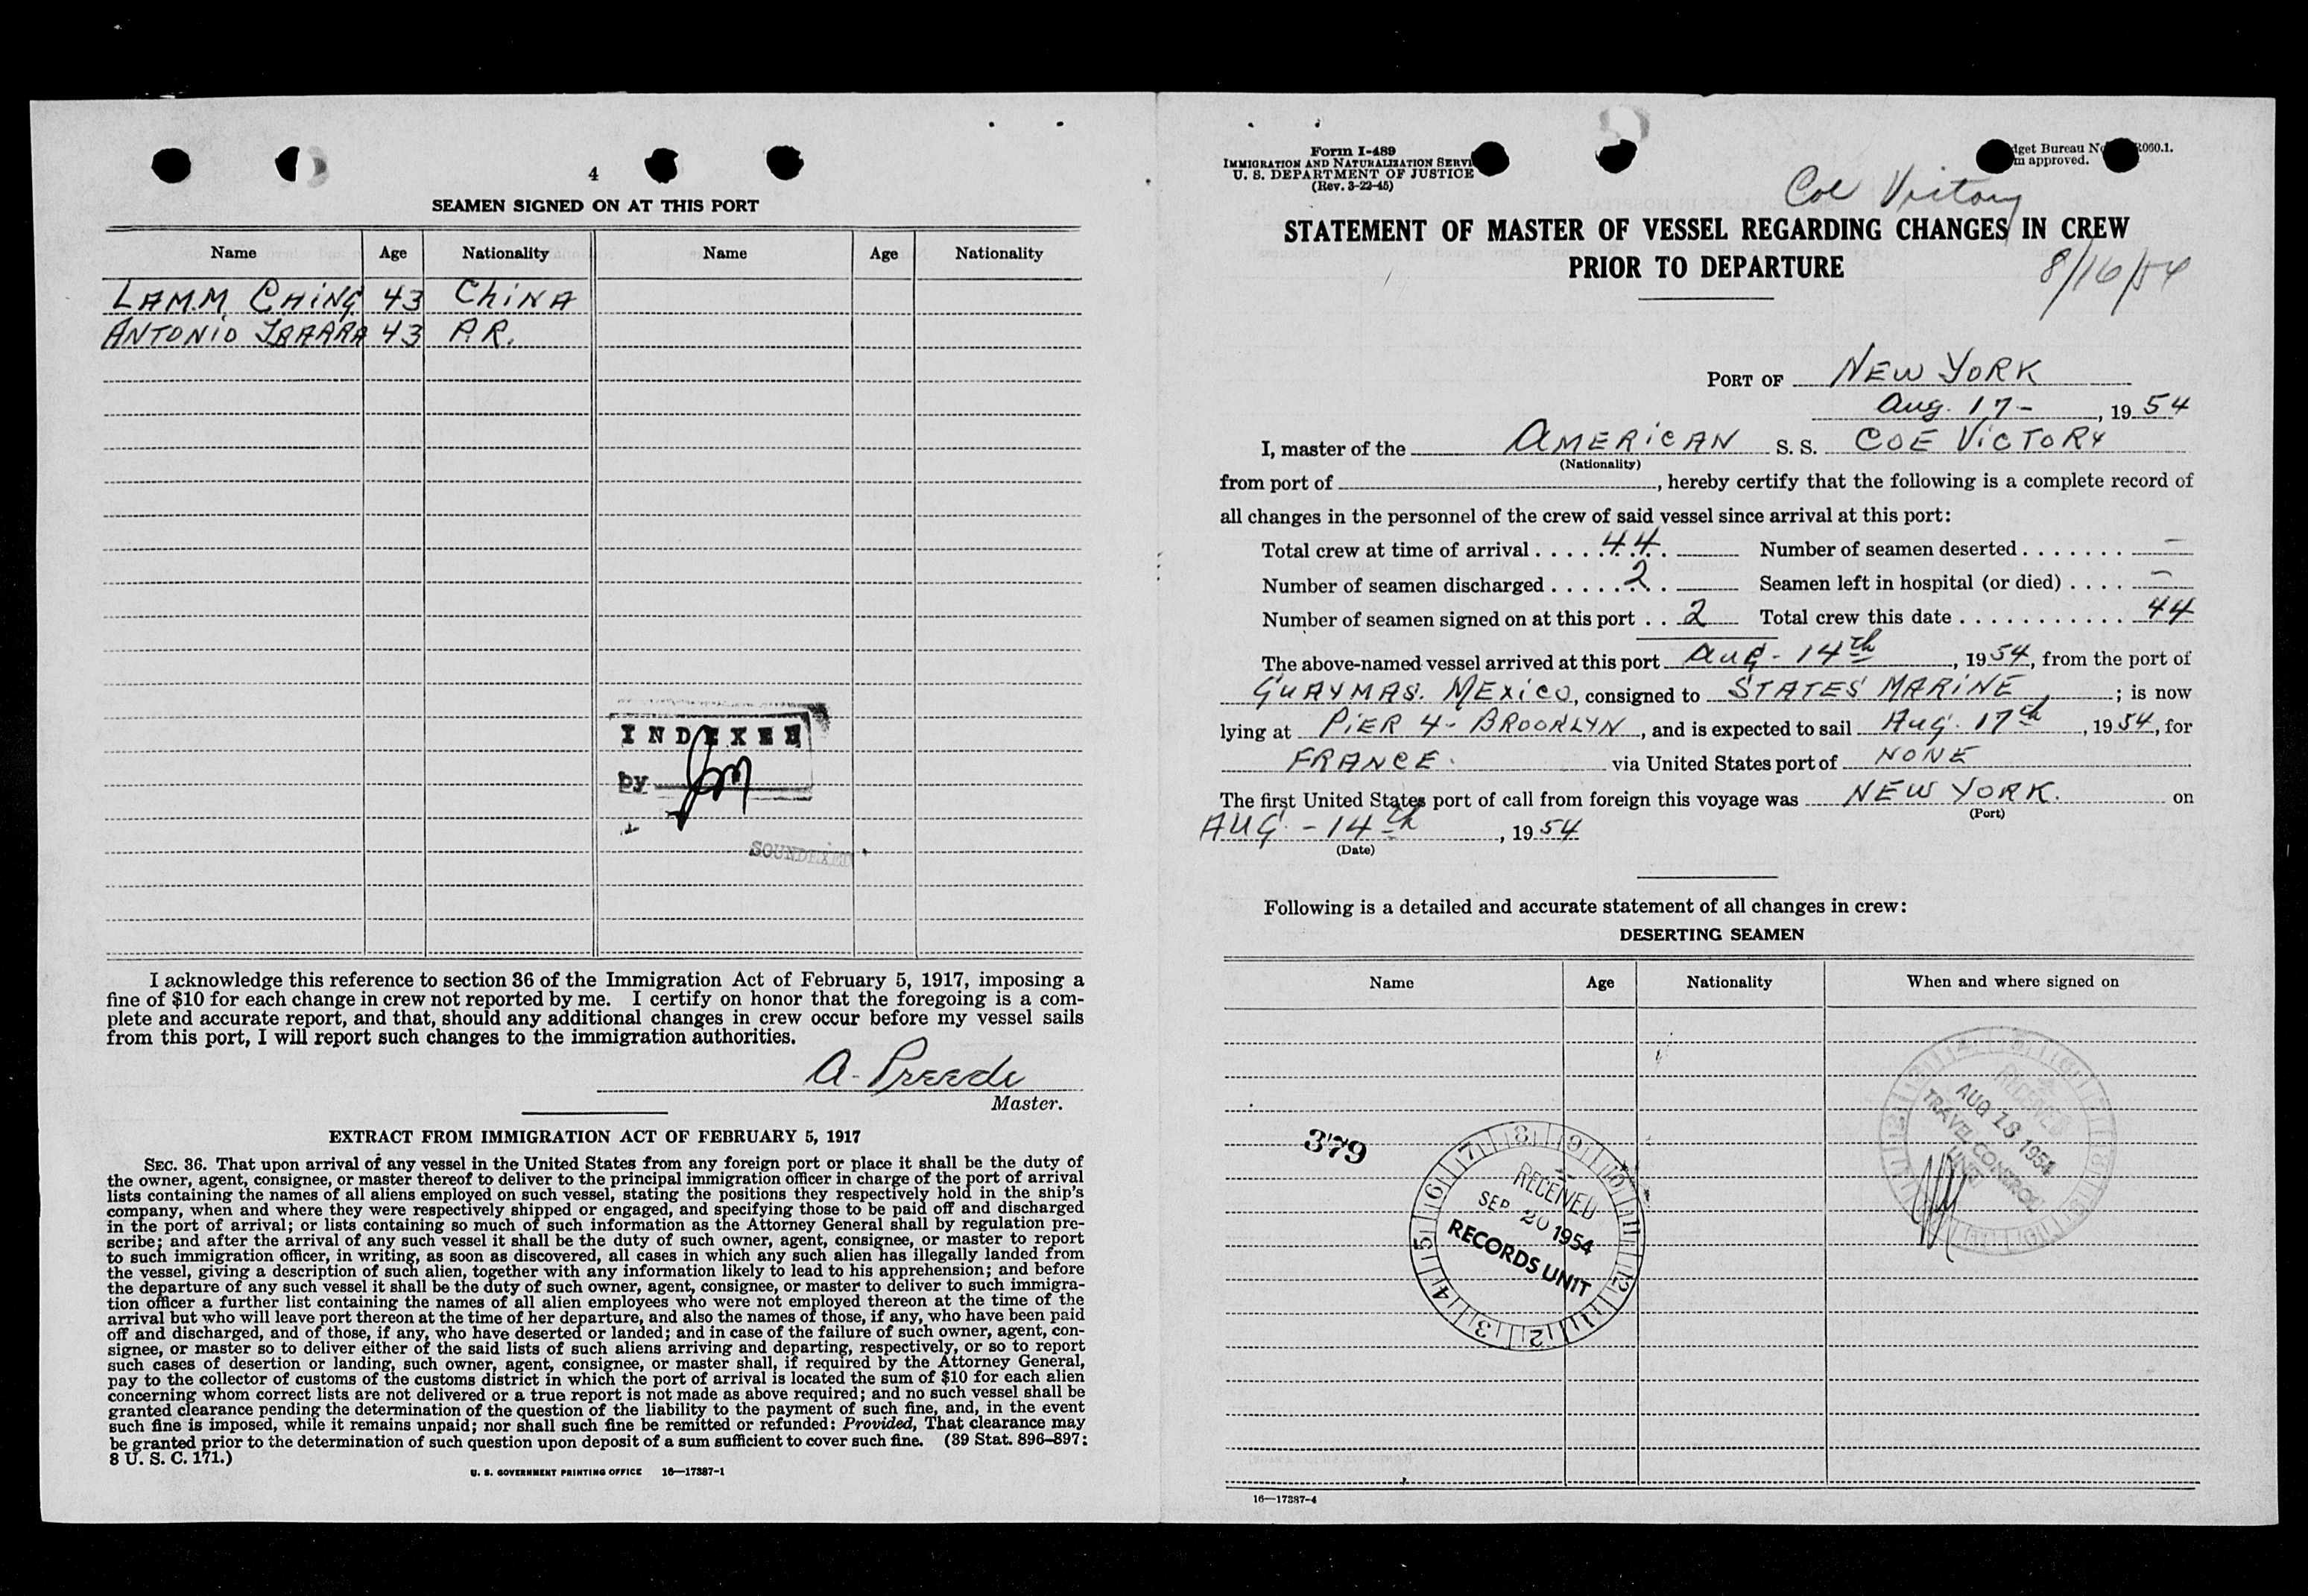 4
SEAMEN SIGNED ON AT THIS PORT
Name Age Nationality Name Age Nationality
LAM.M. CHING 43 CHINA
ANTONIO 43 P.R.
INDEXED
by
SOUNDEXED
I acknowledge this reference to section 36 of the Immigration Act of February 5, 1917, imposing a
fine of $10 for each change in crew not reported by me. I certify on honor that the foregoing is a com-
plete and accurate report, and that, should any additional changes in crew occur before my vessel sails
from this port, I will report such changes to the immigration authorities.
A. Preede
Master.
EXTRACT FROM IMMIGRATION ACT OF FEBRUARY 5, 1917
SEC. 36. That upon arrival of any vessel in the United States from any foreign port or place it shall be the duty of
the owner, agent, consignee, or master thereof to deliver to the principal immigration officer in charge of the port of arrival
lists containing the names of all aliens employed on such vessel, stating the positions they respectively hold in the ship's
company, when and where they were respectively shipped or engaged, and specifying those to be paid off and discharged
in the port of arrival; or lists containing so much of such information as the Attorney General shall by regulation pre-
scribe; and after the arrival of any such vessel it shall be the duty of such owner, agent, consignee, or master to report
to such immigration officer, in writing, as soon as discovered, all cases in which any such alien has illegally landed from
the vessel, giving a description of such alien, together with any information likely to lead to his apprehension; and before
the departure of any such vessel it shall be the duty of such owner, agent, consignee, or master to deliver to such immigra-
tion officer a further list containing the names of all alien employees who were not employed thereon at the time of the
arrival but who will leave port thereon at the time of her departure, and also the names of those, if any, who have been paid
off and discharged, and of those, if any, who have deserted or landed; and in case of the failure of such owner, agent, con-
signee, or master so to deliver either of the said lists of such aliens arriving and departing, respectively, or so to report
such cases of desertion or landing, such owner, agent, consignee, or master shall, if required by the Attorney General,
pay to the collector of customs of the customs district in which the port of arrival is located the sum of $10 for each alien
concerning whom correct lists are not delivered or a true report is not made as above required; and no such vessel shall be
granted clearance pending the determination of the question of the liability to the payment of such fine, and, in the event
such fine is imposed, while it remains unpaid; nor shall such fine be remitted or refunded: Provided, That clearance may
be granted prior to the determination of such question upon deposit of a sum sufficient to cover such fine. (39 Stat. 896-897;
8 U. S. C. 171.)
U. S. GOVERNMENT PRINTING OFFICE 16—17387-1
Form I-489
IMMIGRATION AND NATURALIZATION SERVI
U. S. DEPARTMENT OF JUSTICE
(Rev. 3-22-45)
dget Bureau No 060.1.
m approved.
Coe Victory
STATEMENT OF MASTER OF VESSEL REGARDING CHANGES IN CREW
PRIOR TO DEPARTURE
8/16/54
PORT OF NEW YORK
Aug. 17-, 1954
I, master of the AMERICAN S. S. COE VICTORY
(Nationality)
from port of , hereby certify that the following is a complete record of
all changes in the personnel of the crew of said vessel since arrival at this port:
Total crew at time of arrival 44 Number of seamen deserted -
Number of seamen discharged 2 Seamen left in hospital (or died) -
Number of seamen signed on at this port 2 Total crew this date 44
The above-named vessel arrived at this port Aug - 14th, 1954, from the port of
GUAYMAS. MEXICO, consigned to STATES MARINE; is now
lying at PIER 4 - BROOKLYN, and is expected to sail Aug. 17th, 1954, for
FRANCE. via United States port of NONE
The first United States port of call from foreign this voyage was NEW YORK. on
(Port)
AUG - 14th, 1954
(Date)
Following is a detailed and accurate statement of all changes in crew:
DESERTING SEAMEN
Name Age Nationality When and where signed on
379
RECEIVED
SEP 20 1954
RECORDS UNIT
RECEIVED
AUG 18 1954
TRAVEL CONTROL
UNIT
16—17387-4